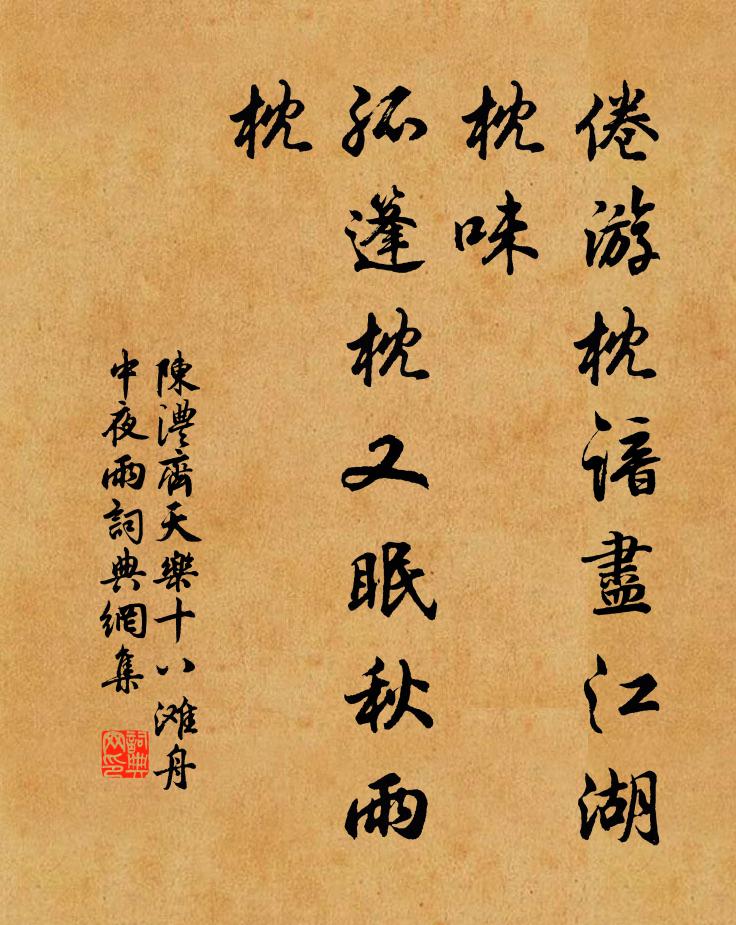 倦游枕谙盡江湖
枕味
孤篷枕又眠秋雨
枕
陳澧齊天樂十八滩舟
中夜雨詞典網集
詞典
网印